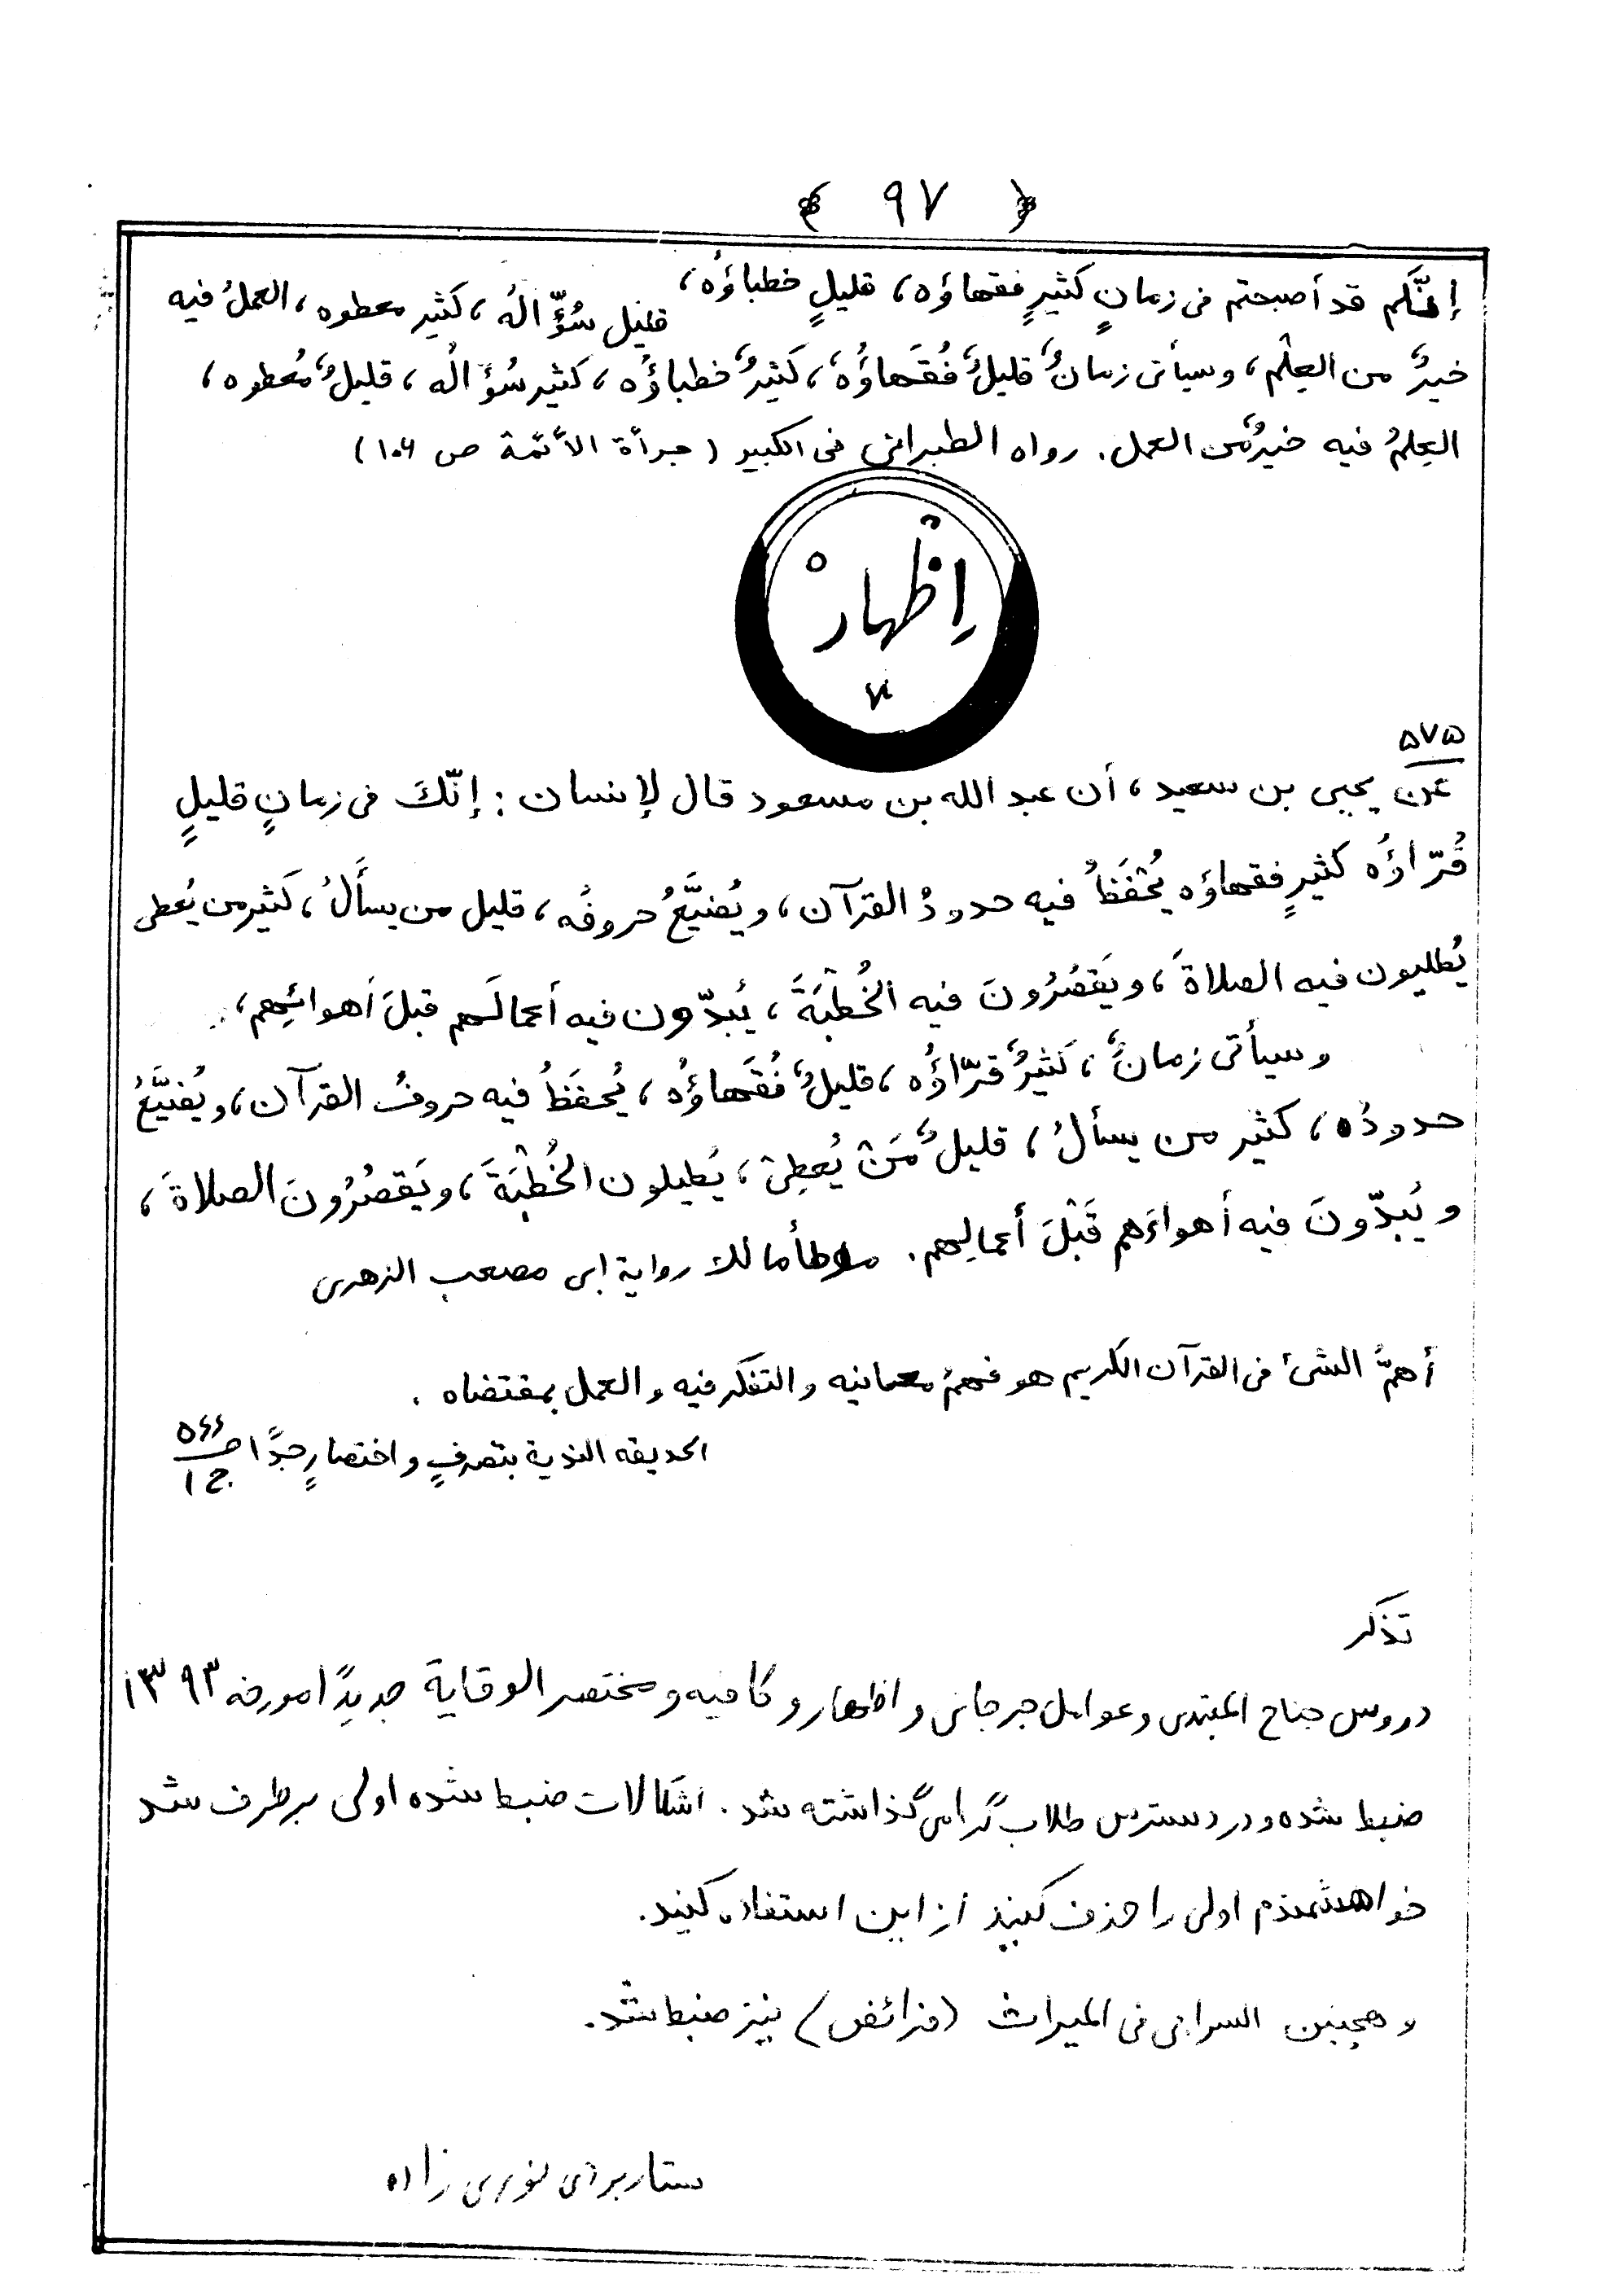 ﴿ ٩٧ ﴾
إنَّكم قد أصبحتم فى زمانٍ كثيرٍ فقهاؤه، قليلٍ خطباؤُه، قليل سُؤّالُه، كثير معطوه، العملُ فيه
خيرٌ من العِلْم، وسيأتى زمانٌ قليلٌ فُقَهاؤُهُ، كثيرٌ خطباؤُه، كثير سُؤالُه، قليلٌ مُعطوه،
العِلمُ فيه خيرٌ من العمل. رواه الطبرانى فى الكبير (جرأة الأئمة ص ١٠٦)
اِظْهارْ
٥٧٥
عن يحيى بن سعيد، أن عبد الله بن مسعود قال لإنسان: إنّكَ فى زمانٍ قليلٍ
قُرّاؤُه كثيرٍ فقهاؤه يُحْفَظُ فيه حدودُ القرآن، ويُضيَّعُ حروفُه، قليل من يسأَلُ، كثير من يُعطى
يُطليون فيه الصلاةَ، ويَقصُرُونَ فيه الخُطْبَةَ، يُبدّون فيه أعمالَهم قبلَ أهوائِهم،
وسيأتى زمانٌ، كَثيرٌ قرّاؤُه، قليلٌ فُقَهاؤُه، يُحفَظُ فيه حروفُ القرآن، ويُضيَّعُ
حدودُه، كثير من يسألُ، قليلٌ مَنْ يُعطِىْ، يُطيلون الخُطْبَةَ، ويَقصُرُونَ الصلاةَ،
و يُبدّونَ فيه أهواءَهم قَبْلَ أعمالِهم. موطأ مالك رواية ابى مصعب الزهرى
أهمُّ الشئ فى القرآن الكريم هو فهمُ معانيه والتفكر فيه والعمل بمقتضاه.
الحديقه الندية بتصرفٍ و اختصارٍ جدًّا ص ٥٦٦ ج ١
تذكر
دروس جناح المبتدى وعوامل جرجانى و اظهار و كافيه و مختصر الوقاية جديدًا مورخه ١٣٩٣
ضبط شده و در دسترس طلاب گرامى گذاشته شد. اشكالات ضبط شده اولى برطرف شد
خواهشمندم اولى را حذف كنيد از اين استفاده كنيد.
و همچنين السراجى فى الميراث (فرائض) نيز ضبط شد.
ستار بردى نورى زاده